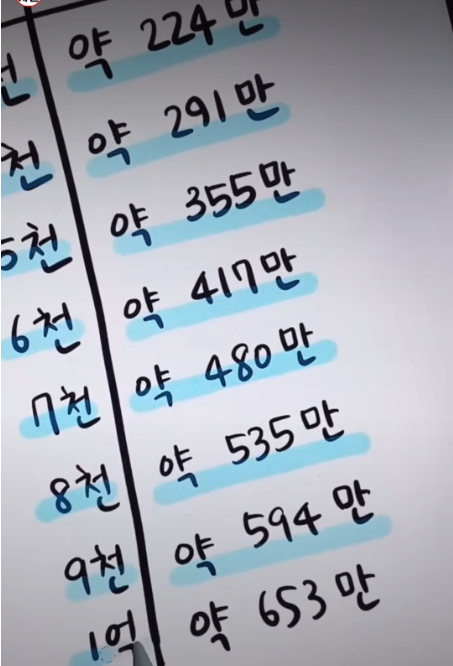 천 약 224만
천 약 291만
5천 약 355만
6천 약 417만
7천 약 480만
8천 약 535만
9천 약 594만
1억 약 653만